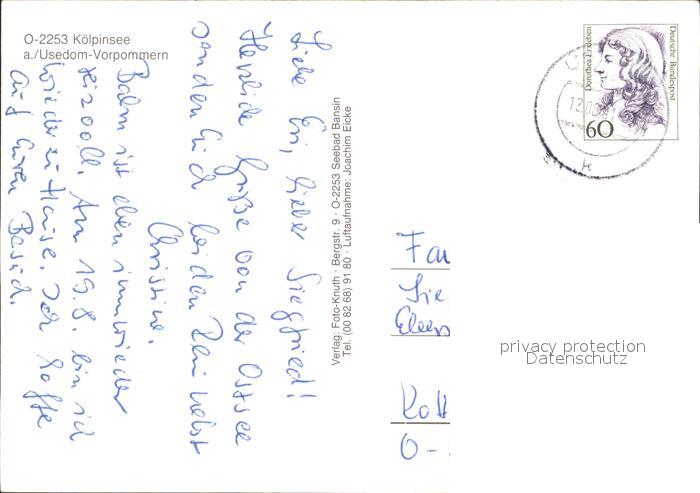 O-2253 Kölpinsee
a./Usedom-Vorpommern
Liebe Evi, lieber Siegfried!
Herzliche Grüße von der Ostsee
senden Euch beiden
Christine.
Bahn ist eben immer wieder
reizvoll. Am 19.8. bin ich
wieder zu Hause. Ich hoffe
auf Euren Besuch.
Verlag: Foto-Knuth · Bergstr. 9 · O-2253 Seebad Bansin
Tel. (00 82 68) 91 80 · Luftaufnahme: Joachim Eicke
Dorothea Erxleben
Deutsche Bundespost
60
Fa
Sie
Ko
O-
privacy protection
Datenschutz